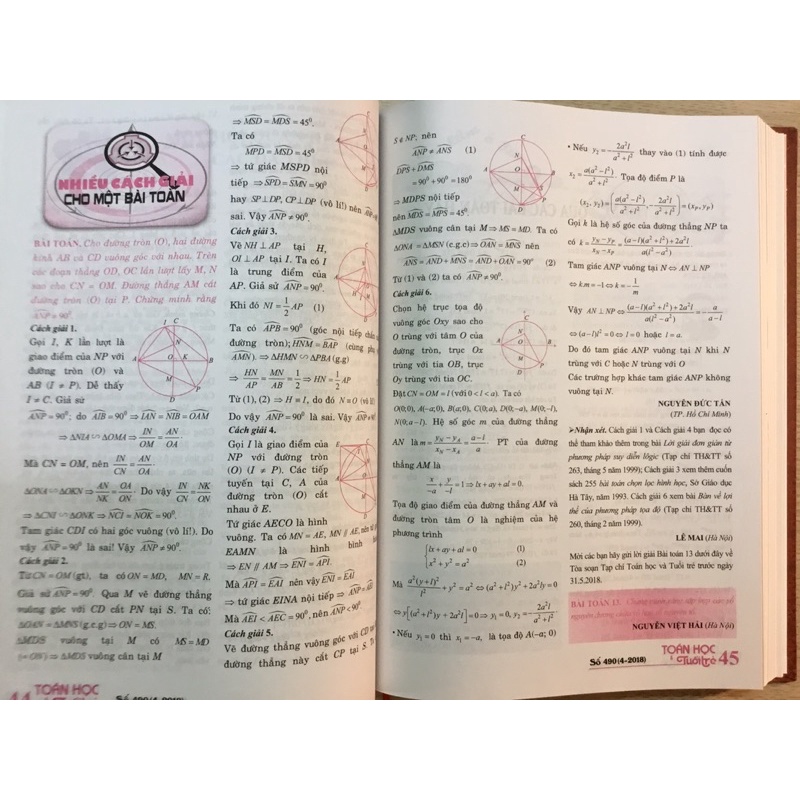 NHIỀU CÁCH GIẢI
CHO MỘT BÀI TOÁN
BÀI TOÁN. Cho đường tròn (O), hai đường
kính AB và CD vuông góc với nhau. Trên
các đoạn thẳng OD, OC lần lượt lấy M, N
sao cho CN = OM. Đường thẳng AM cắt
đường tròn (O) tại P. Chứng minh rằng
ANP ≠ 90⁰.
Cách giải 1.
Gọi I, K lần lượt là
giao điểm của NP với
đường tròn (O) và
AB (I ≠ P). Dễ thấy
I ≠ C. Giả sử
ANP = 90⁰; do AIB = 90⁰ ⇒ IAN = NIB = OAM
⇒ ΔNIA ∽ ΔOMA ⇒ IN/OM = AN/OA.
Mà CN = OM, nên IN/CN = AN/OA
ΔONA ∽ ΔOKN ⇒ AN/NK = OA/ON. Do vậy IN/CN = NK/ON
⇒ ΔCNI ∽ ΔONK ⇒ NCI = NOK = 90⁰.
Tam giác CDI có hai góc vuông (vô lí!). Do
vậy ANP = 90⁰ là sai! Vậy ANP ≠ 90⁰.
Cách giải 2.
Từ CN = OM (gt), ta có ON = MD, MN = R.
Giả sử ANP = 90⁰. Qua M vẽ đường thẳng
vuông góc với CD cắt PN tại S. Ta có:
ΔOAN = ΔMNS (g.c.g) ⇒ ON = MS.
ΔMDS vuông tại M có MS = MD
(= ON) ⇒ ΔMDS vuông cân tại M
TOÁN HỌC
⇒ MSD = MDS = 45⁰.
Ta có
MPD = MSD = 45⁰
⇒ tứ giác MSPD nội
tiếp ⇒ SPD = SMN = 90⁰
hay SP⊥DP, CP⊥DP (vô lí!) nên
sai. Vậy ANP ≠ 90⁰.
Cách giải 3.
Vẽ NH⊥AP tại H,
OI⊥AP tại I. Ta có I
là trung điểm của
AP. Giả sử ANP = 90⁰.
Khi đó NI = 1/2 AP (1)
Ta có APB = 90⁰ (góc nội tiếp chắn
đường tròn); HNM = BAP (cùng phụ
AMN). ⇒ ΔHMN ∽ ΔPBA (g.g)
⇒ HN/AP = MN/AB = 1/2 ⇒ HN = 1/2 AP
Từ (1), (2) ⇒ H ≡ I, do đó N ≡ O (vô lí)
Do vậy ANP = 90⁰ là sai. Vậy ANP ≠ 90⁰.
Cách giải 4.
Gọi I là giao điểm của
NP với đường tròn
(O) (I ≠ P). Các tiếp
tuyến tại C, A của
đường tròn (O) cắt
nhau ở E.
Tứ giác AECO là hình
vuông. Ta có MN = AE, MN ∥ AE, nên
EAMN là hình bình
⇒ EN ∥ AM ⇒ ENI = API.
Mà API = EAI nên vậy ENI = EAI
⇒ tứ giác EINA nội tiếp ⇒
Mà AEI < AEC = 90⁰, nên ANP < 90⁰.
Cách giải 5.
Vẽ đường thẳng vuông góc với CD tại
đường thẳng này cắt CP tại S. Ta
S ∉ NP; nên
ANP ≠ ANS (1)
DPS + DMS
= 90⁰ + 90⁰ = 180⁰
⇒ MDPS nội tiếp
nên MDS = MPS = 45⁰.
ΔMDS vuông cân tại M ⇒ MS = MD. Ta có
ΔONA = ΔMSN (c.g.c) ⇒ OAN = MNS nên
ANS = AND + MNS = AND + OAN = 90⁰ (2)
Từ (1) và (2) ta có ANP ≠ 90⁰.
Cách giải 6.
Chọn hệ trục tọa độ
vuông góc Oxy sao cho
O trùng với tâm O của
đường tròn, trục Ox
trùng với tia OB, trục
Oy trùng với tia OC.
Đặt CN = OM = l (với 0 < l < a). Ta có
O(0;0), A(-a;0), B(a;0), C(0;a), D(0;-a), M(0;-l),
N(0;a-l). Hệ số góc m của đường thẳng
AN là m = (y_N - y_A)/(x_N - x_A) = (a-l)/a. PT của đường
thẳng AM là
x/(-a) + y/(-l) = 1 ⇒ lx + ay + al = 0.
Tọa độ giao điểm của đường thẳng AM và
đường tròn tâm O là nghiệm của hệ
phương trình
lx + ay + al = 0 (1)
x² + y² = a². (2)
Mà a²(y+l)²/l² + y² = a² ⇔ (a²+l²)y² + 2a²ly = 0
⇔ y[(a²+l²)y + 2a²l] = 0 ⇒ y₁ = 0, y₂ = -2a²l/(a²+l²)
• Nếu y₁ = 0 thì x₁ = -a, là tọa độ A(-a; 0)
• Nếu y₂ = -2a²l/(a²+l²) thay vào (1) tính được
x₂ = a(a²-l²)/(a²+l²). Tọa độ điểm P là
(x₂, y₂) = (a(a²-l²)/(a²+l²), -2a²l/(a²+l²)) = (x_P, y_P)
Gọi k là hệ số góc của đường thẳng NP ta
có k = (y_N - y_P)/(x_N - x_P) = ((a-l)(a²+l²)+2a²l)/(a(l²-a²)).
Tam giác ANP vuông tại N ⇔ AN⊥NP
⇔ k.m = -1 ⇔ k = -1/m
Vậy AN⊥NP ⇔ ((a-l)(a²+l²)+2a²l)/(a(l²-a²)) = -a/(a-l)
⇔ (a-l)l² = 0 ⇔ l = 0 hoặc l = a.
Do đó tam giác ANP vuông tại N khi N
trùng với C hoặc N trùng với O
Các trường hợp khác tam giác ANP không
vuông tại N.
NGUYỄN ĐỨC TẤN
(TP. Hồ Chí Minh)
➢Nhận xét. Cách giải 1 và Cách giải 4 bạn đọc có
thể tham khảo thêm trong bài Lời giải đơn giản từ
phương pháp suy diễn lôgic (Tạp chí TH&TT số
263, tháng 5 năm 1999); Cách giải 3 xem thêm cuốn
sách 255 bài toán chọn lọc hình học, Sở Giáo dục
Hà Tây, năm 1993. Cách giải 6 xem bài Bàn về lợi
thế của phương pháp tọa độ (Tạp chí TH&TT số
260, tháng 2 năm 1999).
LÊ MAI (Hà Nội)
Mời các bạn hãy gửi lời giải Bài toán 13 dưới đây về
Tòa soạn Tạp chí Toán học và Tuổi trẻ trước ngày
31.5.2018.
BÀI TOÁN 13.
NGUYỄN VIỆT HẢI (Hà Nội)
Số 490(4-2018) TOÁN HỌC & Tuổi trẻ 45